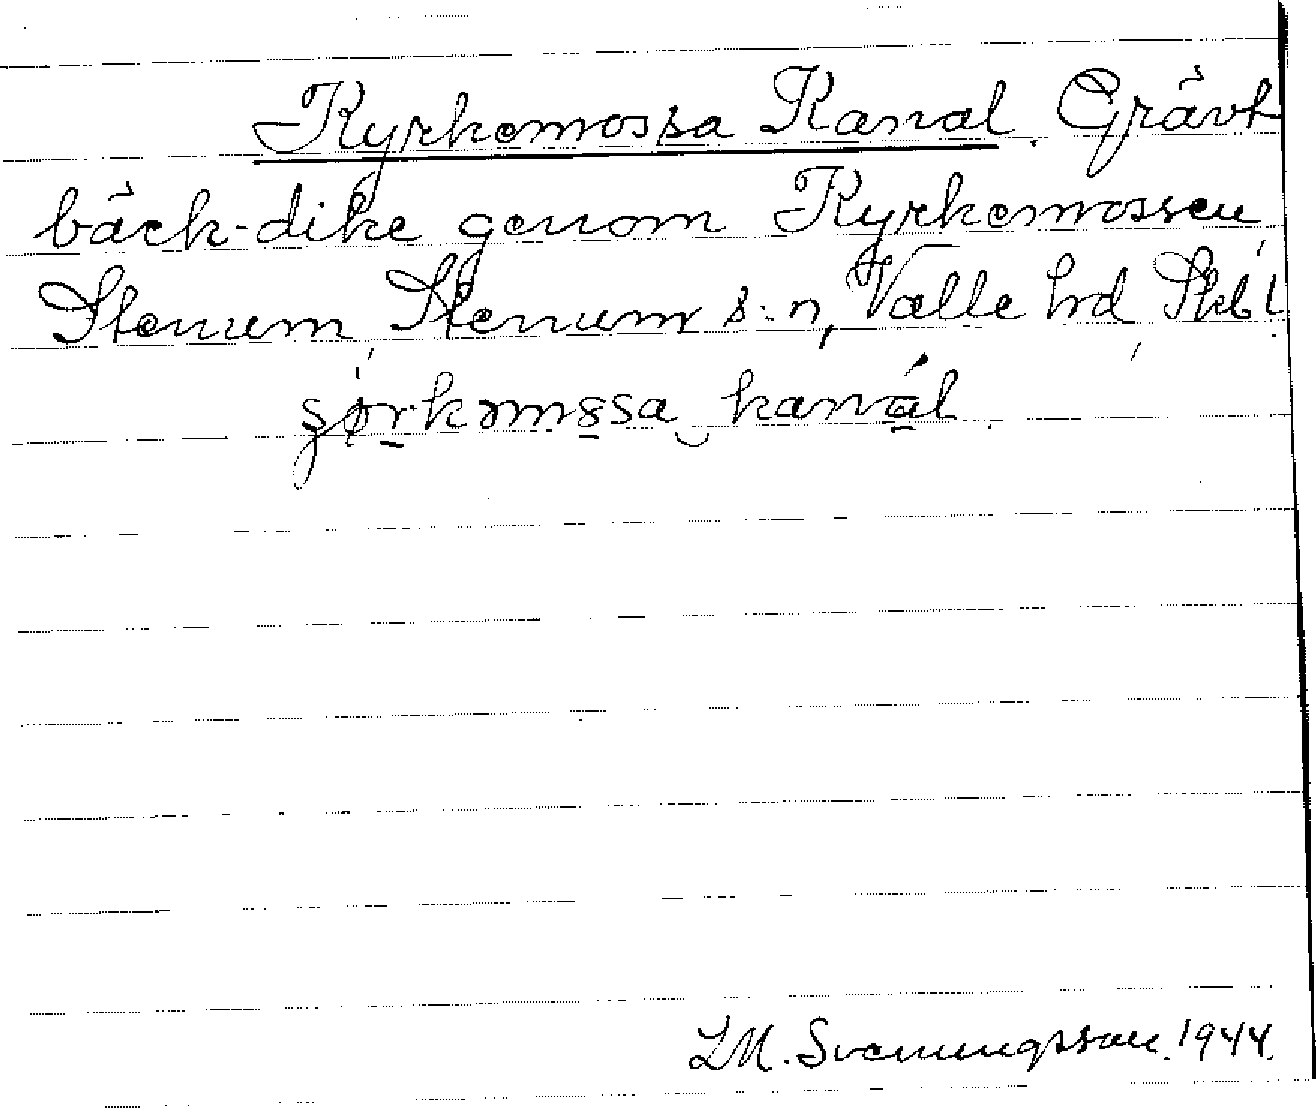 Kyrkemossa Kanal. Grävt
bäck-dike genom Kyrkemossen,
Stenum Stenum s:n, Valle hd Skbl.
kanál.
LM. Svenungsson. 1944.